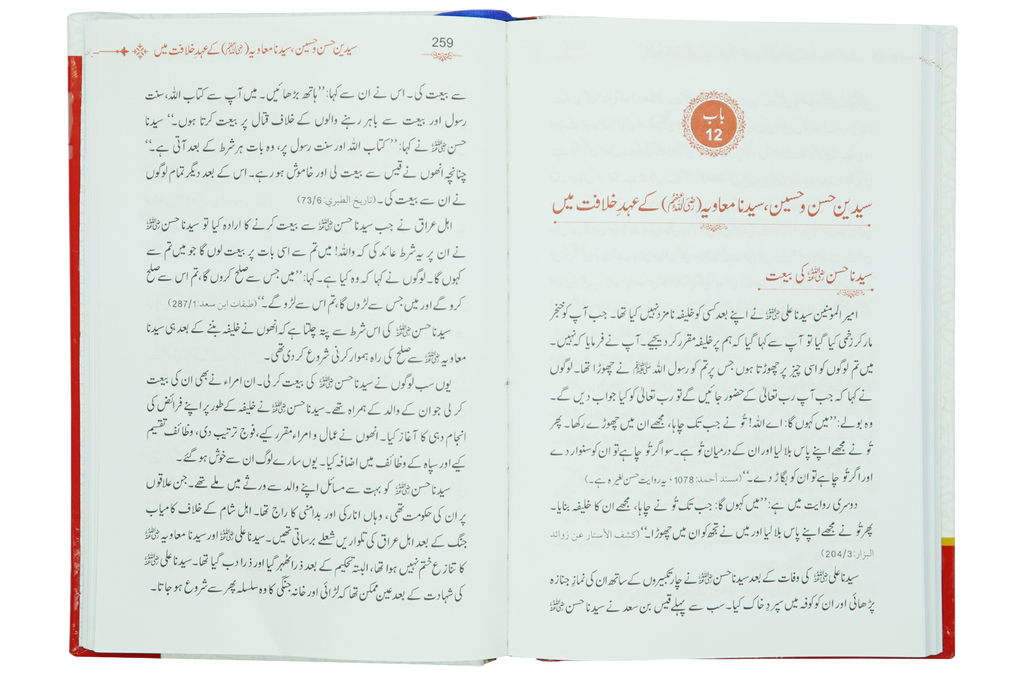 باب
12
سیدین حسن و حسین، سیدنا معاویہ (رضی اللہ عنہم) کے عہدِ خلافت میں
سیدنا حسن رضی اللہ عنہ کی بیعت
امیر المومنین سیدنا علی رضی اللہ عنہ نے اپنے بعد کسی کو خلیفہ نامزد نہیں کیا تھا۔ جب آپ کو خنجر
مار کر زخمی کیا گیا تو آپ سے کہا گیا کہ ہم پر خلیفہ مقرر کر دیجیے۔ آپ نے فرمایا کہ نہیں۔
میں تم لوگوں کو اسی چیز پر چھوڑتا ہوں جس پر تم کو رسول اللہ ﷺ نے چھوڑا تھا۔ لوگوں
نے کہا کہ جب آپ رب تعالیٰ کے حضور جائیں گے تو رب تعالیٰ کو کیا جواب دیں گے۔
وہ بولے: ’’میں کہوں گا: اے اللہ! تُو نے جب تک چاہا، مجھے ان میں چھوڑے رکھا۔ پھر
تُو نے مجھے اپنے پاس بلا لیا اور ان کے درمیان تُو ہے۔ سو اگر تُو چاہے تو ان کو سنوار دے
اور اگر تُو چاہے تو ان کو بگاڑ دے۔‘‘ (مسند أحمد: 1078، یہ روایت حسن لغیرہ ہے۔)
دوسری روایت میں ہے: ’’میں کہوں گا: جب تک تُو نے چاہا، مجھے ان کا خلیفہ بنایا۔
پھر تُو نے مجھے اپنے پاس بلا لیا اور میں نے تجھ کو ان میں چھوڑا۔‘‘ (کشف الأستار عن زوائد
البزار: 204/3)
سیدنا علی رضی اللہ عنہ کی وفات کے بعد سیدنا حسن رضی اللہ عنہ نے چار تکبیروں کے ساتھ ان کی نماز جنازہ
پڑھائی اور ان کو کوفہ میں سپردِ خاک کیا۔ سب سے پہلے قیس بن سعد نے سیدنا حسن رضی اللہ عنہ
259
سیدین حسن و حسین، سیدنا معاویہ (رضی اللہ عنہم) کے عہدِ خلافت میں
سے بیعت کی۔ اس نے ان سے کہا: ’’ہاتھ بڑھائیں۔ میں آپ سے کتاب اللہ، سنت
رسول اور بیعت سے باہر رہنے والوں کے خلاف قتال پر بیعت کرتا ہوں۔‘‘ سیدنا
حسن رضی اللہ عنہ نے کہا: ’’کتاب اللہ اور سنت رسول پر، وہ بات ہر شرط کے بعد آتی ہے۔‘‘
چنانچہ انھوں نے قیس سے بیعت لی اور خاموش ہو رہے۔ اس کے بعد دیگر تمام لوگوں
نے ان سے بیعت کی۔ (تاریخ الطبري: 73/6)
اہل عراق نے جب سیدنا حسن رضی اللہ عنہ سے بیعت کرنے کا ارادہ کیا تو سیدنا حسن رضی اللہ عنہ
نے ان پر یہ شرط عائد کی کہ واللہ! میں تم سے اسی بات پر بیعت لوں گا جو میں تم سے
کہوں گا۔ لوگوں نے کہا کہ وہ کیا ہے۔ کہا: ’’میں جس سے صلح کروں گا، تم اس سے صلح
کرو گے اور میں جس سے لڑوں گا، تم اس سے لڑو گے۔‘‘ (طبقات ابن سعد: 287/1)
سیدنا حسن رضی اللہ عنہ کی اس شرط سے پتہ چلتا ہے کہ انھوں نے خلیفہ بننے کے بعد ہی سیدنا
معاویہ رضی اللہ عنہ سے صلح کی راہ ہموار کرنی شروع کر دی تھی۔
یوں سب لوگوں نے سیدنا حسن رضی اللہ عنہ کی بیعت کر لی۔ ان امراء نے بھی ان کی بیعت
کر لی جو ان کے والد کے ہمراہ تھے۔ سیدنا حسن رضی اللہ عنہ نے خلیفہ کے طور پر اپنے فرائض کی
انجام دہی کا آغاز کیا۔ انھوں نے عمال و امراء مقرر کیے، فوج ترتیب دی، وظائف تقسیم
کیے اور سپاہ کے وظائف میں اضافہ کیا۔ یوں سارے لوگ ان سے خوش ہو گئے۔
سیدنا حسن رضی اللہ عنہ کو بہت سے مسائل اپنے والد سے ورثے میں ملے تھے۔ جن علاقوں
پر ان کی حکومت تھی، وہاں انارکی اور بدامنی کا راج تھا۔ اہل شام کے خلاف کامیاب
جنگ کے بعد اہل عراق کی تلواریں شعلے برساتی تھیں۔ سیدنا علی رضی اللہ عنہ اور سیدنا معاویہ رضی اللہ عنہ
کا تنازع ختم نہیں ہوا تھا، البتہ تحکیم کے بعد ذرا ٹھہر گیا اور ذرا دب گیا تھا۔ سیدنا علی رضی اللہ عنہ
کی شہادت کے بعد عین ممکن تھا کہ لڑائی اور خانہ جنگی کا وہ سلسلہ پھر سے شروع ہو جاتا۔